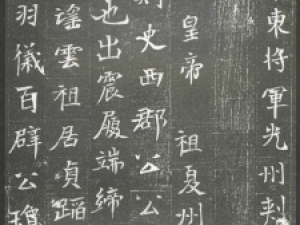 東將軍光州刺
皇帝 祖夏州
史西郡公公
也出震履端締
謠雲祖居貞蹈
羽儀百辟公